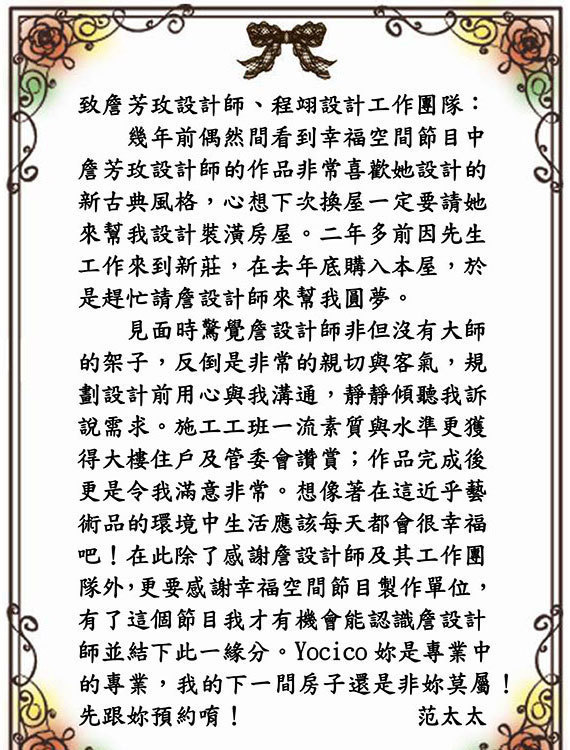 致詹芳玫設計師、程翊設計工作團隊：
幾年前偶然間看到幸福空間節目中
詹芳玫設計師的作品非常喜歡她設計的
新古典風格，心想下次換屋一定要請她
來幫我設計裝潢房屋。二年多前因先生
工作來到新莊，在去年底購入本屋，於
是趕忙請詹設計師來幫我圓夢。
見面時驚覺詹設計師非但沒有大師
的架子，反倒是非常的親切與客氣，規
劃設計前用心與我溝通，靜靜傾聽我訴
說需求。施工工班一流素質與水準更獲
得大樓住戶及管委會讚賞；作品完成後
更是令我滿意非常。想像著在這近乎藝
術品的環境中生活應該每天都會很幸福
吧！在此除了感謝詹設計師及其工作團
隊外，更要感謝幸福空間節目製作單位，
有了這個節目我才有機會能認識詹設計
師並結下此一緣分。Yocico 妳是專業中
的專業，我的下一間房子還是非妳莫屬！
先跟妳預約唷！ 范太太